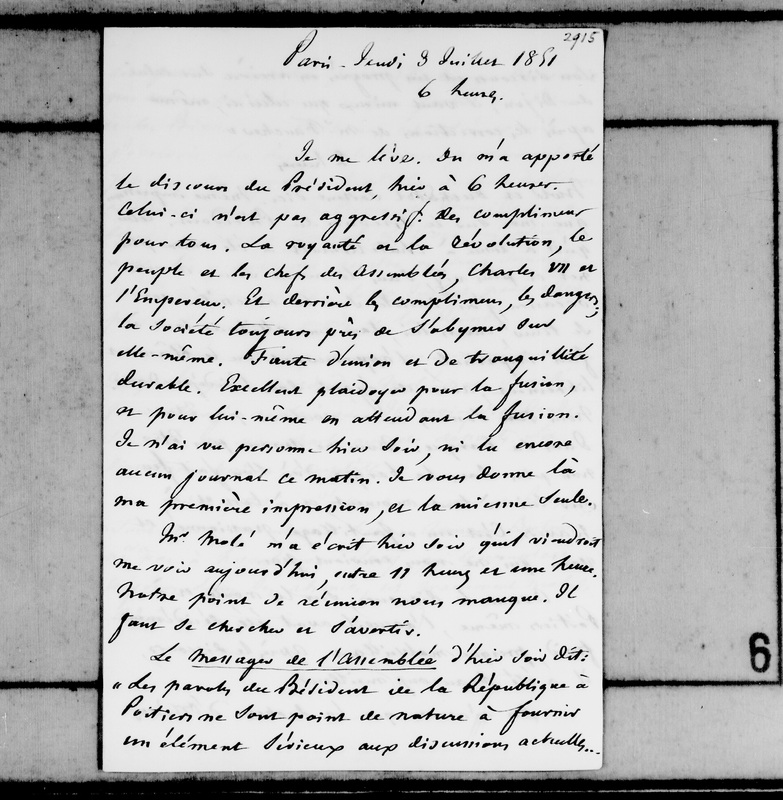 2915
Paris - Jeudi 3 Juillet 1851
6 heures.
Je me lève. On m'a apporté
le discours du Président, hier à 6 heures.
Celui-ci n'est pas aggressif. Des complimens
pour tous. La royauté et la révolution, le
peuple et les chefs des assemblées, Charles VII et
l'Empereur. Et derrière les complimens, les dangers;
la société toujours près de s'abymer sur
elle-même. Feinte d'union et de tranquillité
durable. Excellent plaidoyer pour la fusion,
et pour lui-même en attendant la fusion.
Je n'ai vu personne hier soir, ni lu encore
aucun journal ce matin. Je vous donne là
ma première impression, et la mienne seule.
Mr Molé m'a écrit hier soir qu'il viendroit
me voir aujourd'hui, entre 11 heures et une heure.
Notre point de réunion nous manque. Il
faut se chercher et s'avertir.
Le Messager de l'Assemblée d'hier soir dit:
"Les paroles du Président de la République à
Poitiers ne sont point de nature à fournir
un élément sérieux aux discussions actuelles...
6